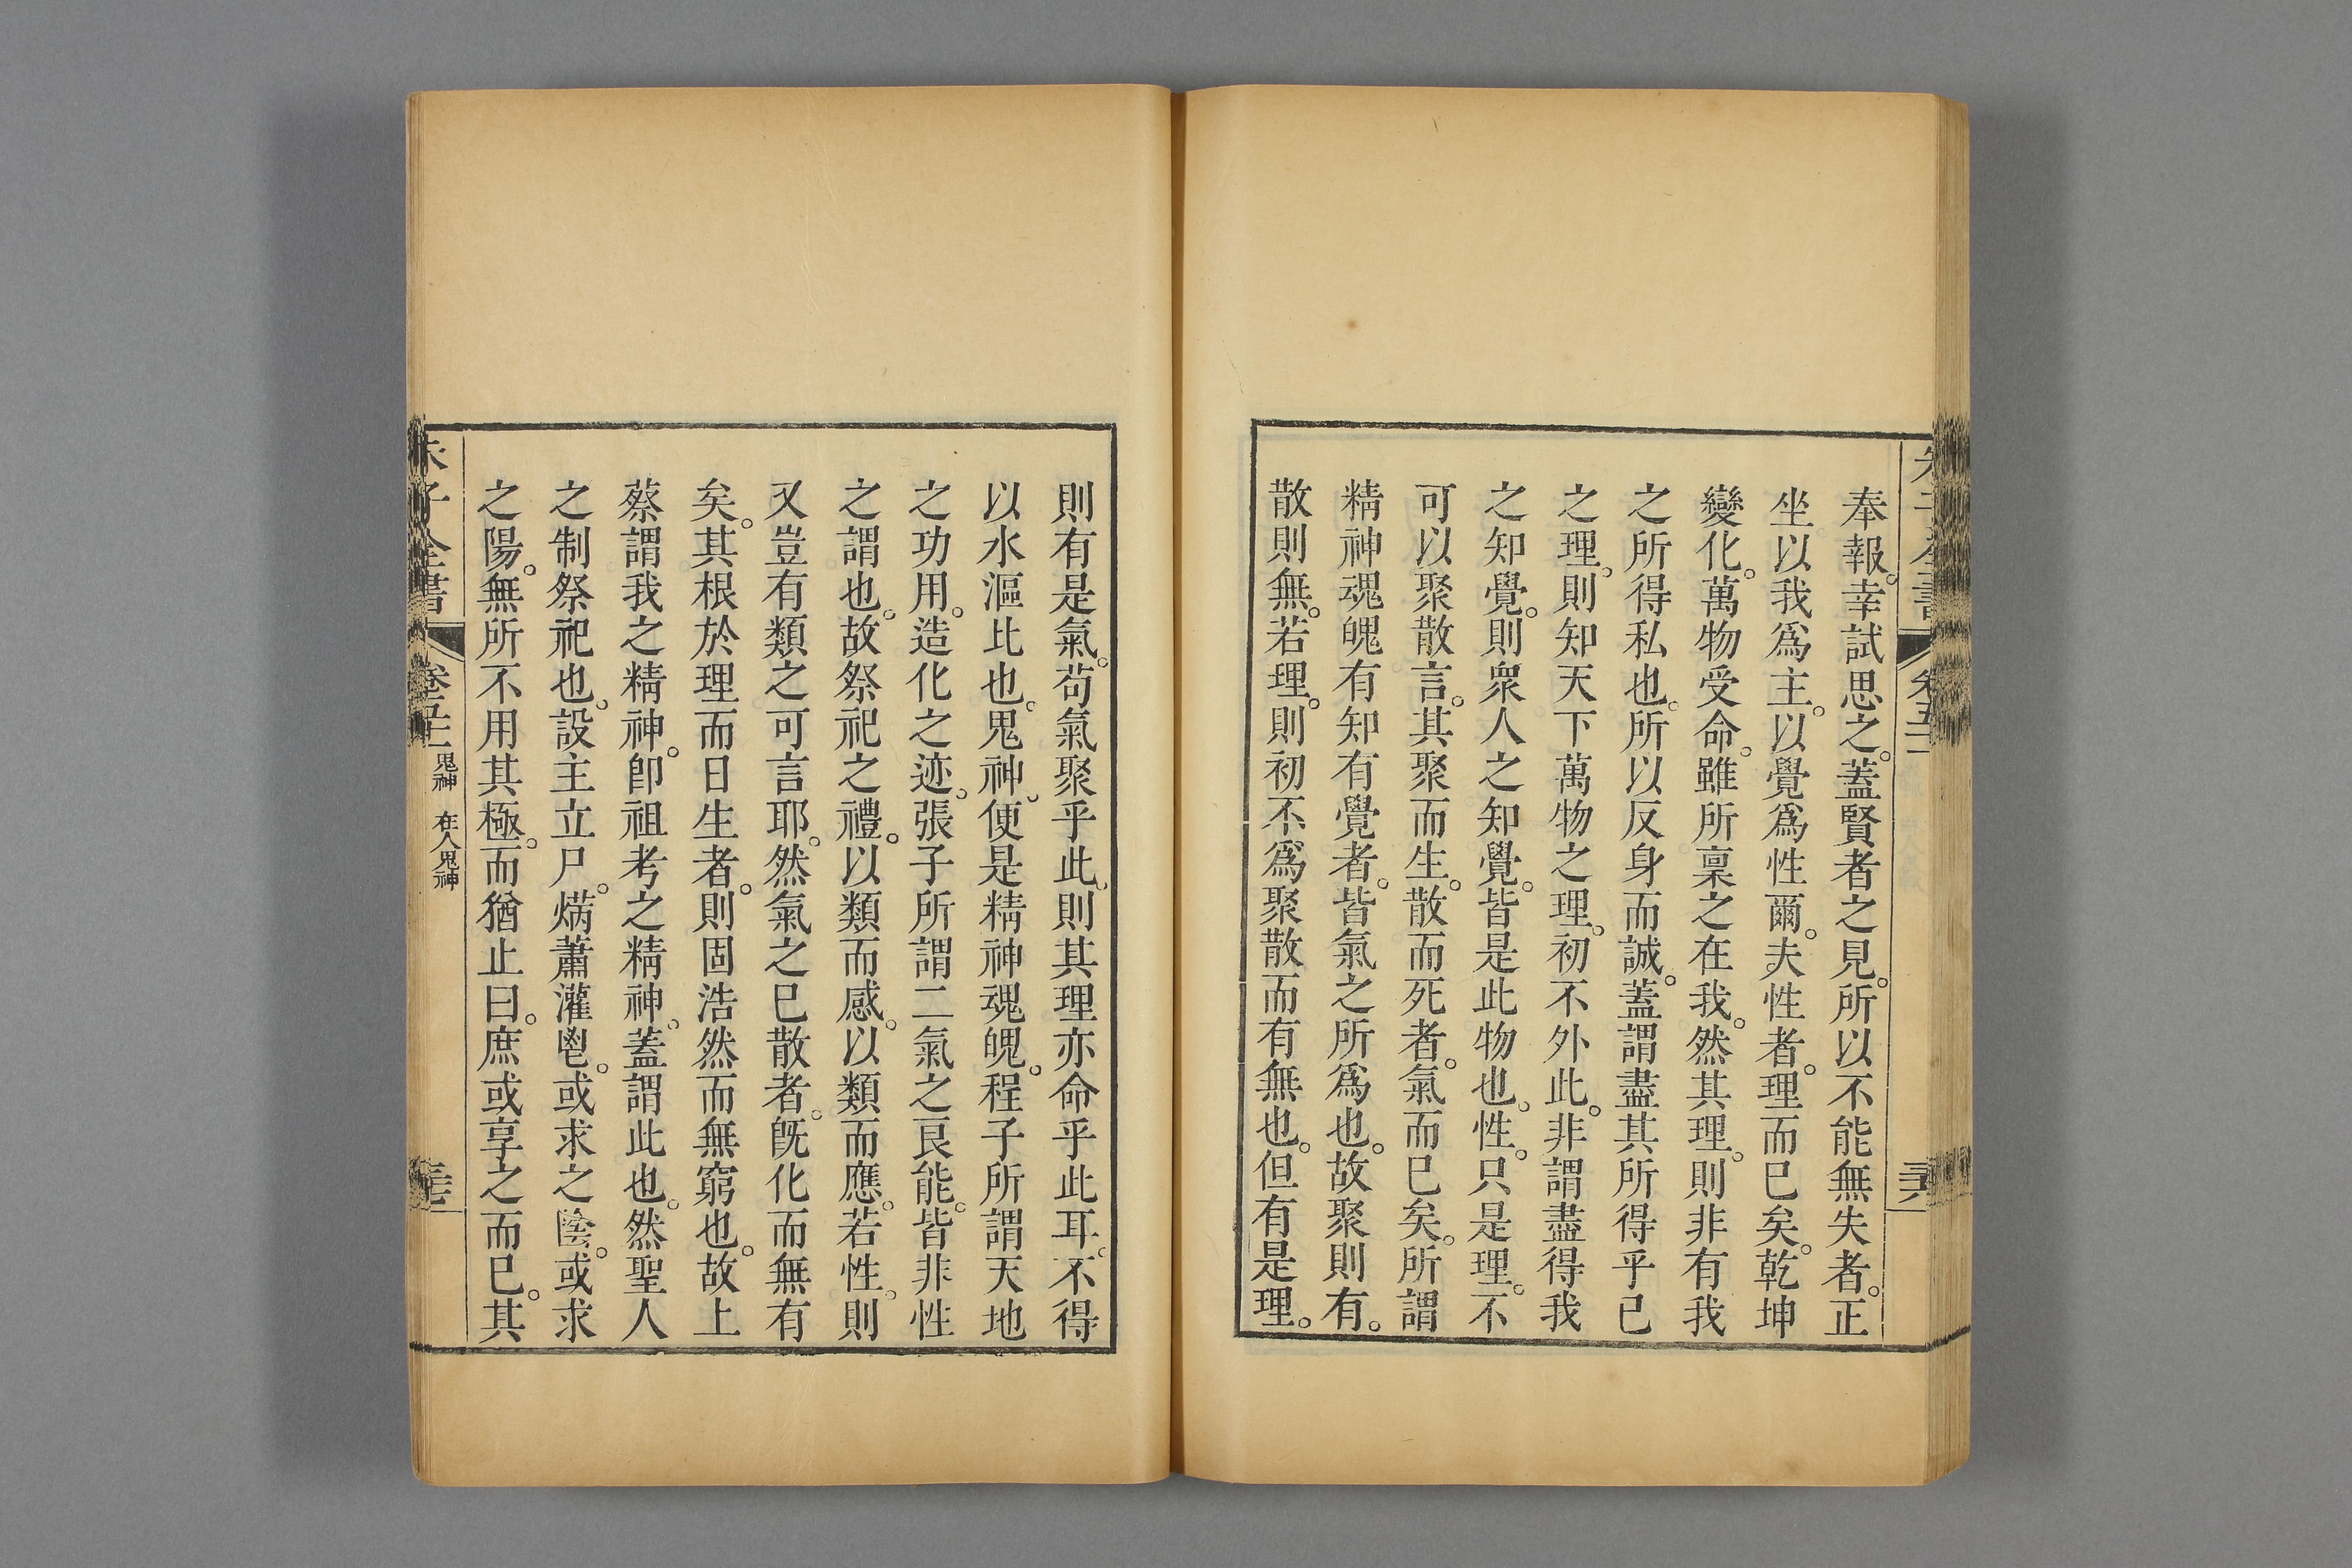 奉報。幸試思之。蓋賢者之見。所以不能無失者。正
坐以我爲主。以覺爲性爾。夫性者。理而已矣。乾坤
變化。萬物受命。雖所稟之在我。然其理。則非有我
之所得私也。所以反身而誠。蓋謂盡其所得乎已
之理。則知天下萬物之理。初不外此。非謂盡得我
之知覺。則衆人之知覺。皆是此物也。性。只是理。不
可以聚散言。其聚而生。散而死者。氣而已矣。所謂
精神魂魄有知有覺者。皆氣之所爲也。故聚則有。
散則無。若理。則初不爲聚散而有無也。但有是理。
則有是氣。苟氣聚乎此。則其理亦命乎此耳。不得
以水漚比也。鬼神。便是精神魂魄。程子所謂天地
之功用。造化之迹。張子所謂二氣之良能。皆非性
之謂也。故祭祀之禮。以類而感。以類而應。若性。則
又豈有類之可言耶。然氣之已散者。旣化而無有
矣。其根於理而日生者。則固浩然而無窮也。故上
蔡謂我之精神。卽祖考之精神。蓋謂此也。然聖人
之制祭祀也。設主立尸。焫蕭灌鬯。或求之陰。或求
之陽。無所不用其極。而猶止曰。庶或享之而已。其
朱子全書 卷五十一 鬼神 在人鬼神